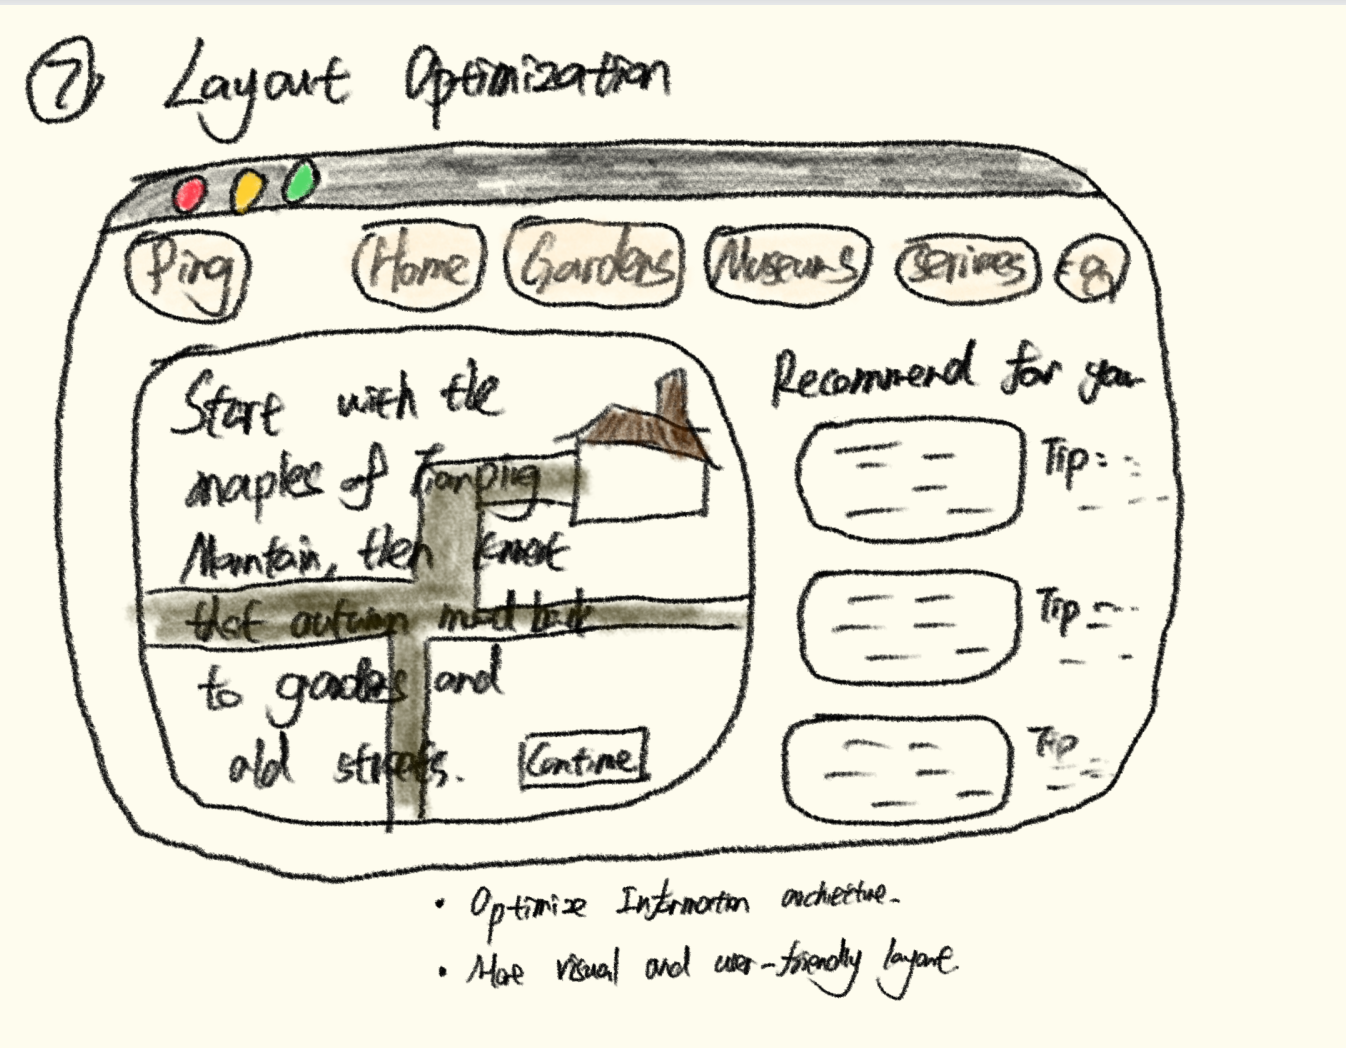 7
Layout Optimization
Ping Home Gardens Museums
Start with the
maples of Tianping
Mountain, then
that autumn mood back
to gardens and
old streets. Continue
Recommend for you
Tip:
Tip
Tip
• Optimize Information architecture.
• More visual and user-friendly layout.